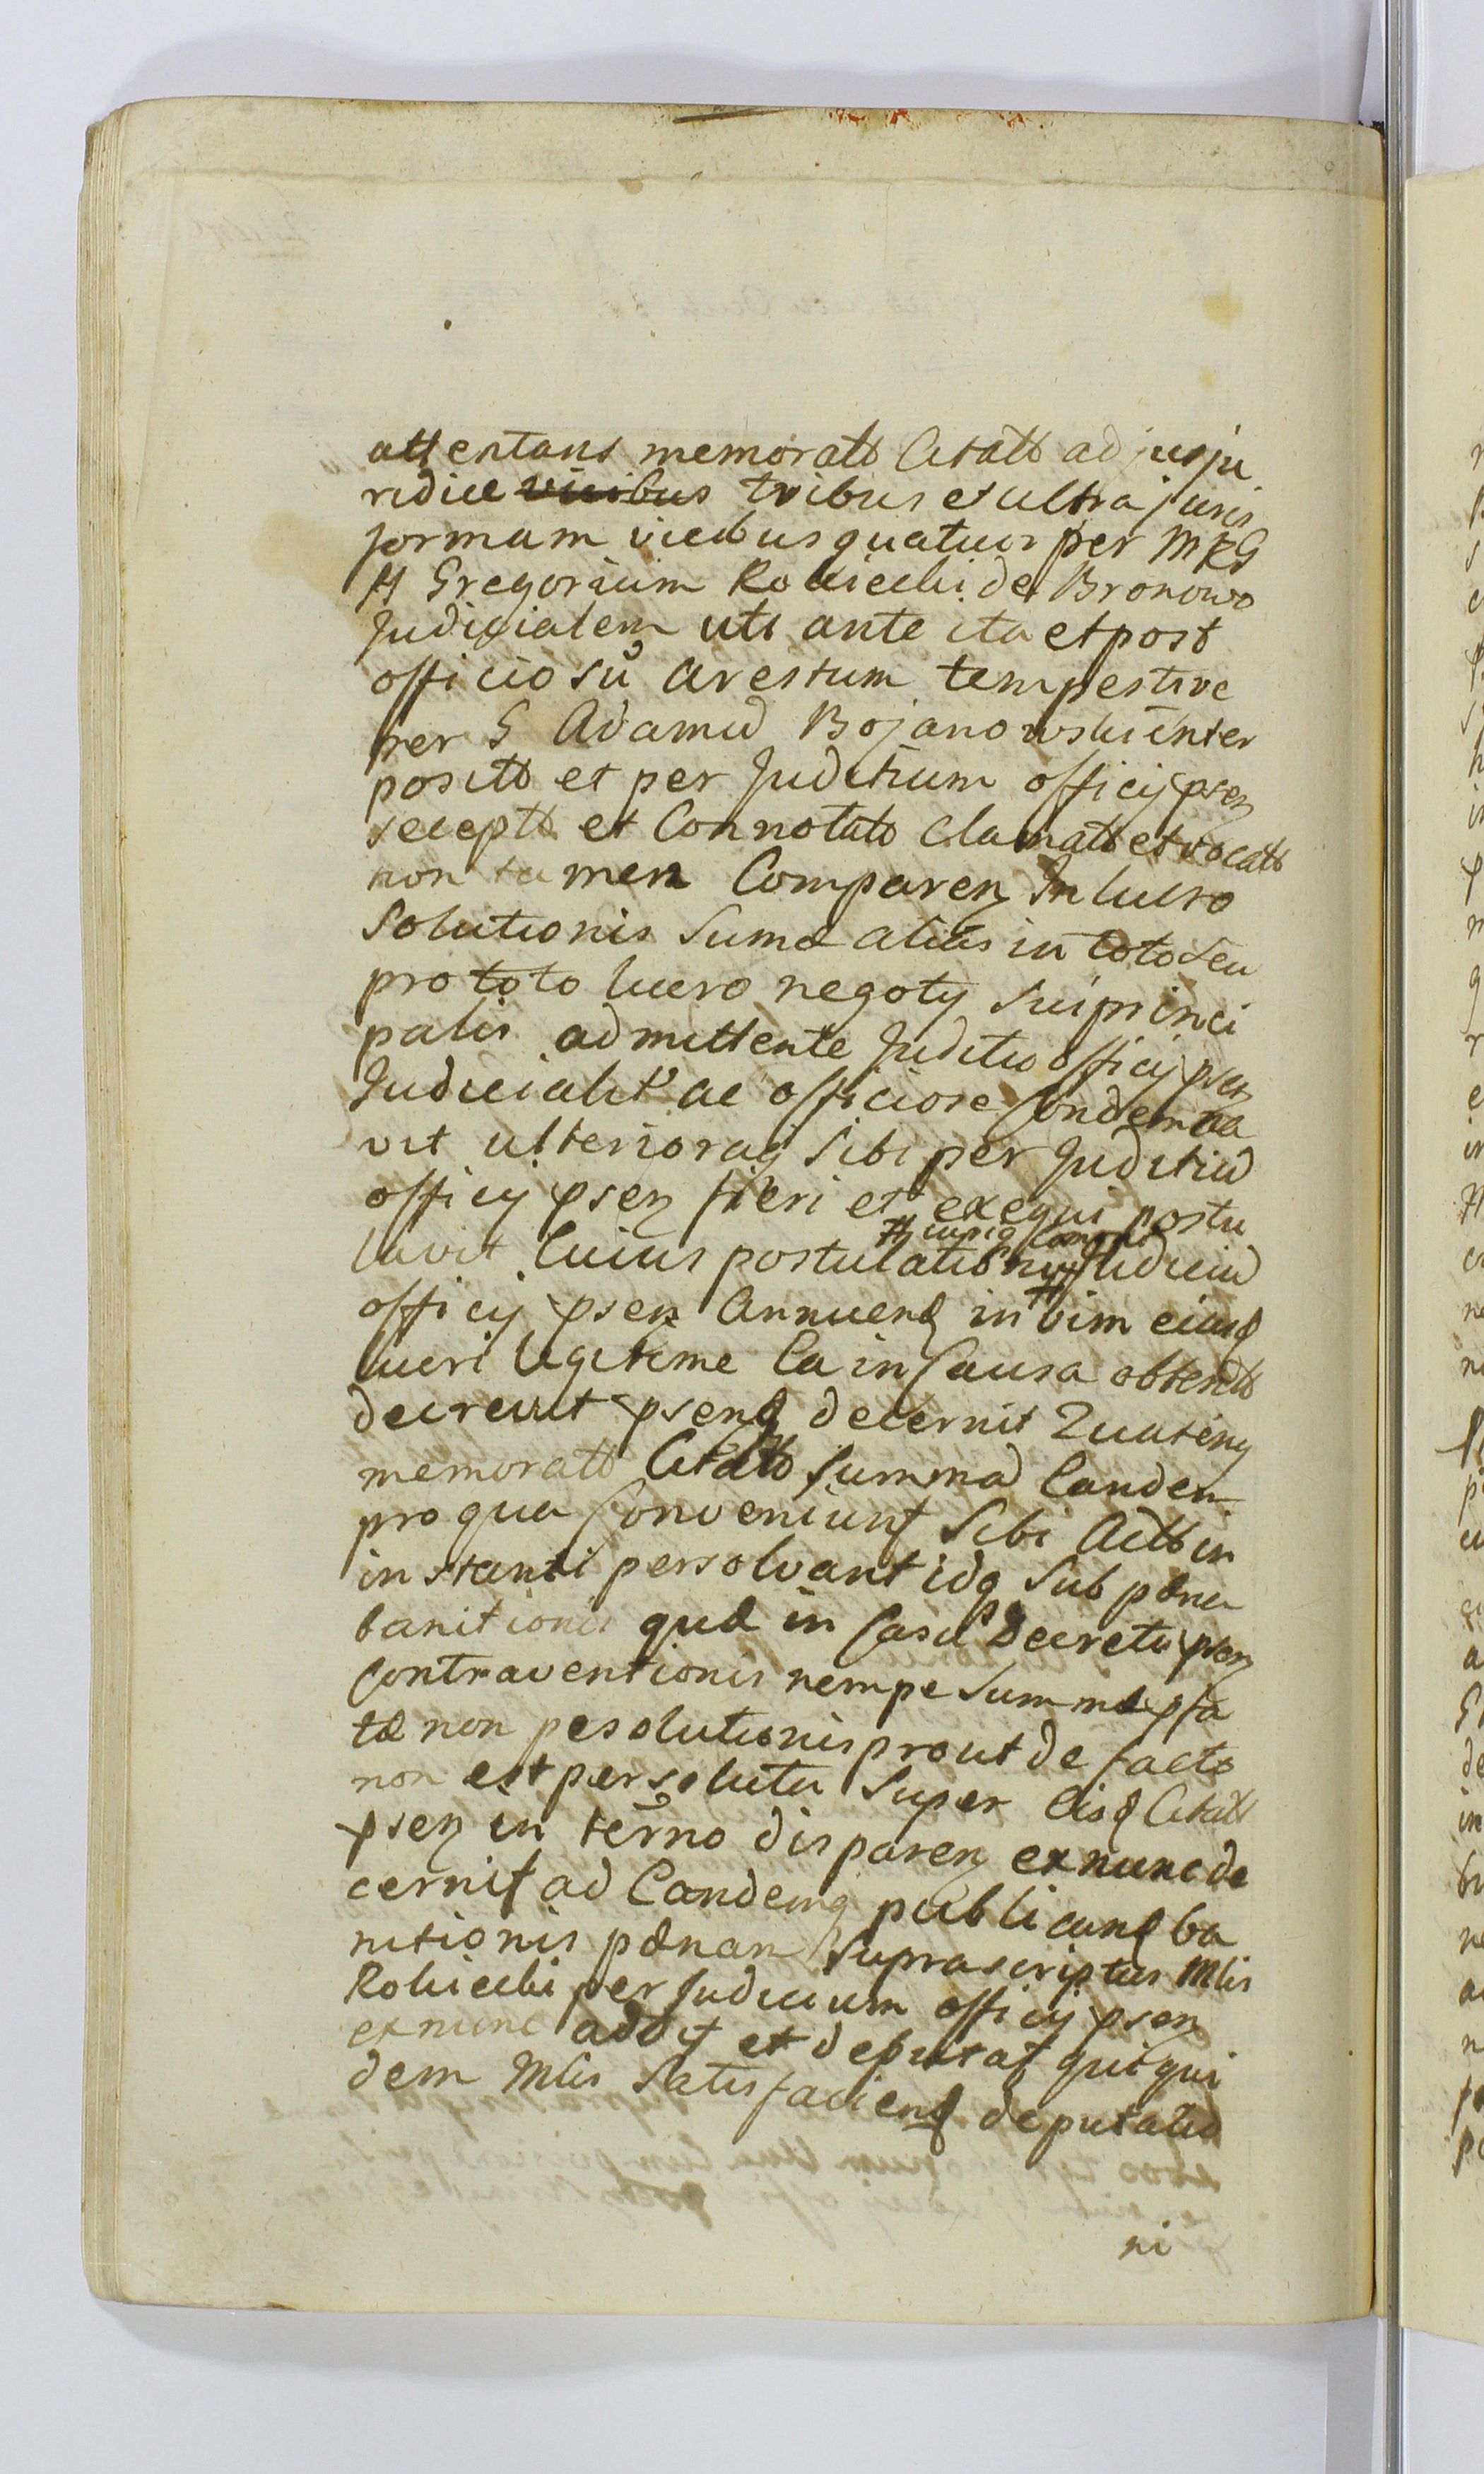 attentans memoratt Citatt ad jus ju
ridice vicibus tribus et ultra juris
formam vicibus quatuor per MRG
H Gregorium Rokicki de Bronowo
Judicialem uti ante ita et post
officiosū arestum tempestive
per G Adamū Bojanowski inter
positt et per Juditium officij psen
suscept et Connotatt clamatt et vocatt
non tamen Comparen In lucro
Solutionis Sumæ alias in toto seu
pro toto lucro negotij sui princi
palis admittente Juditio officij psen
Judicialit' ac officiose Condemna
vit ulterioraq sibi per Juditiū
officij psen fieri et exequi postu
lavit Cuius postulationi Judiciū
officij psen Annuend in vim eiusd
lucri legitime Ca in Causa obtent
decrevit psend decernit Quateng
memoratt Citatt Summā Eandem
pro qua Conveniunt Sibi Actt in
instanti persolvant idq sub pæna
banitionis quæ in Casū Decreti psen
Contraventionis nempe Summæ pfa
tæ non pesolutionis prout de facto
non est persoluta Super Eisd Citatt
psen in termo disparen ex nunc de
cernit ad Eandemq publicand ba
nitionis pænam Suprascriptus Mlis
Rokicki per Judicium officij psen
ex nunc addit et deputat qui qui
dem Mlis Satisfaciend deputatio
ni